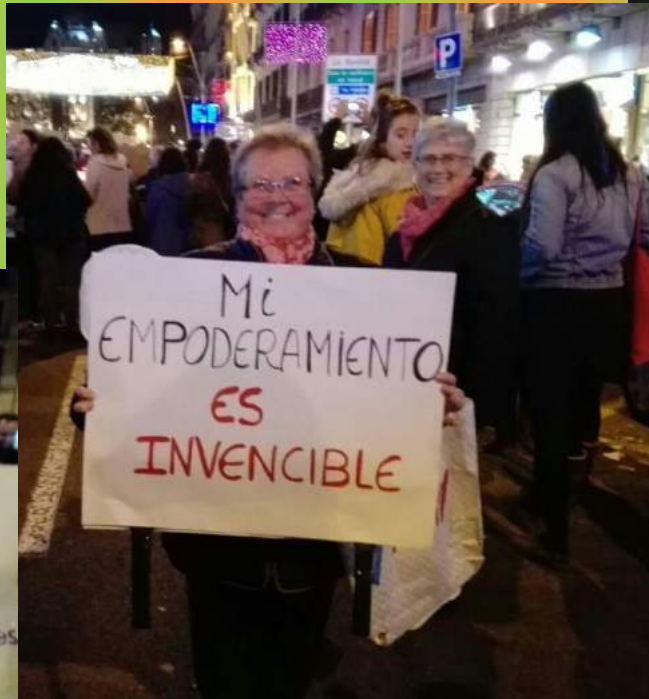 Mi
EMPODERAMIENTO
ES
INVENCIBLE
P